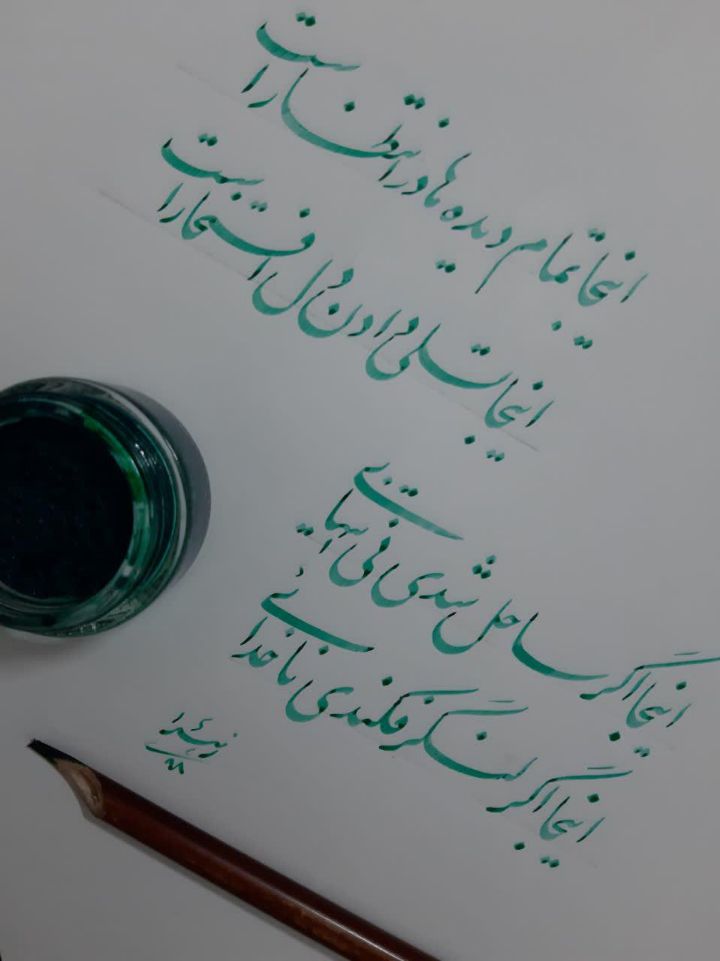 اینجا تمام دیده ها در انتظار است
اینجا تسلی دادن دل افتخار است
اینجا اگر ساحل شدی بی انتهایی
اینجا اگر لنگر فکندی ناخدائی
۹۸